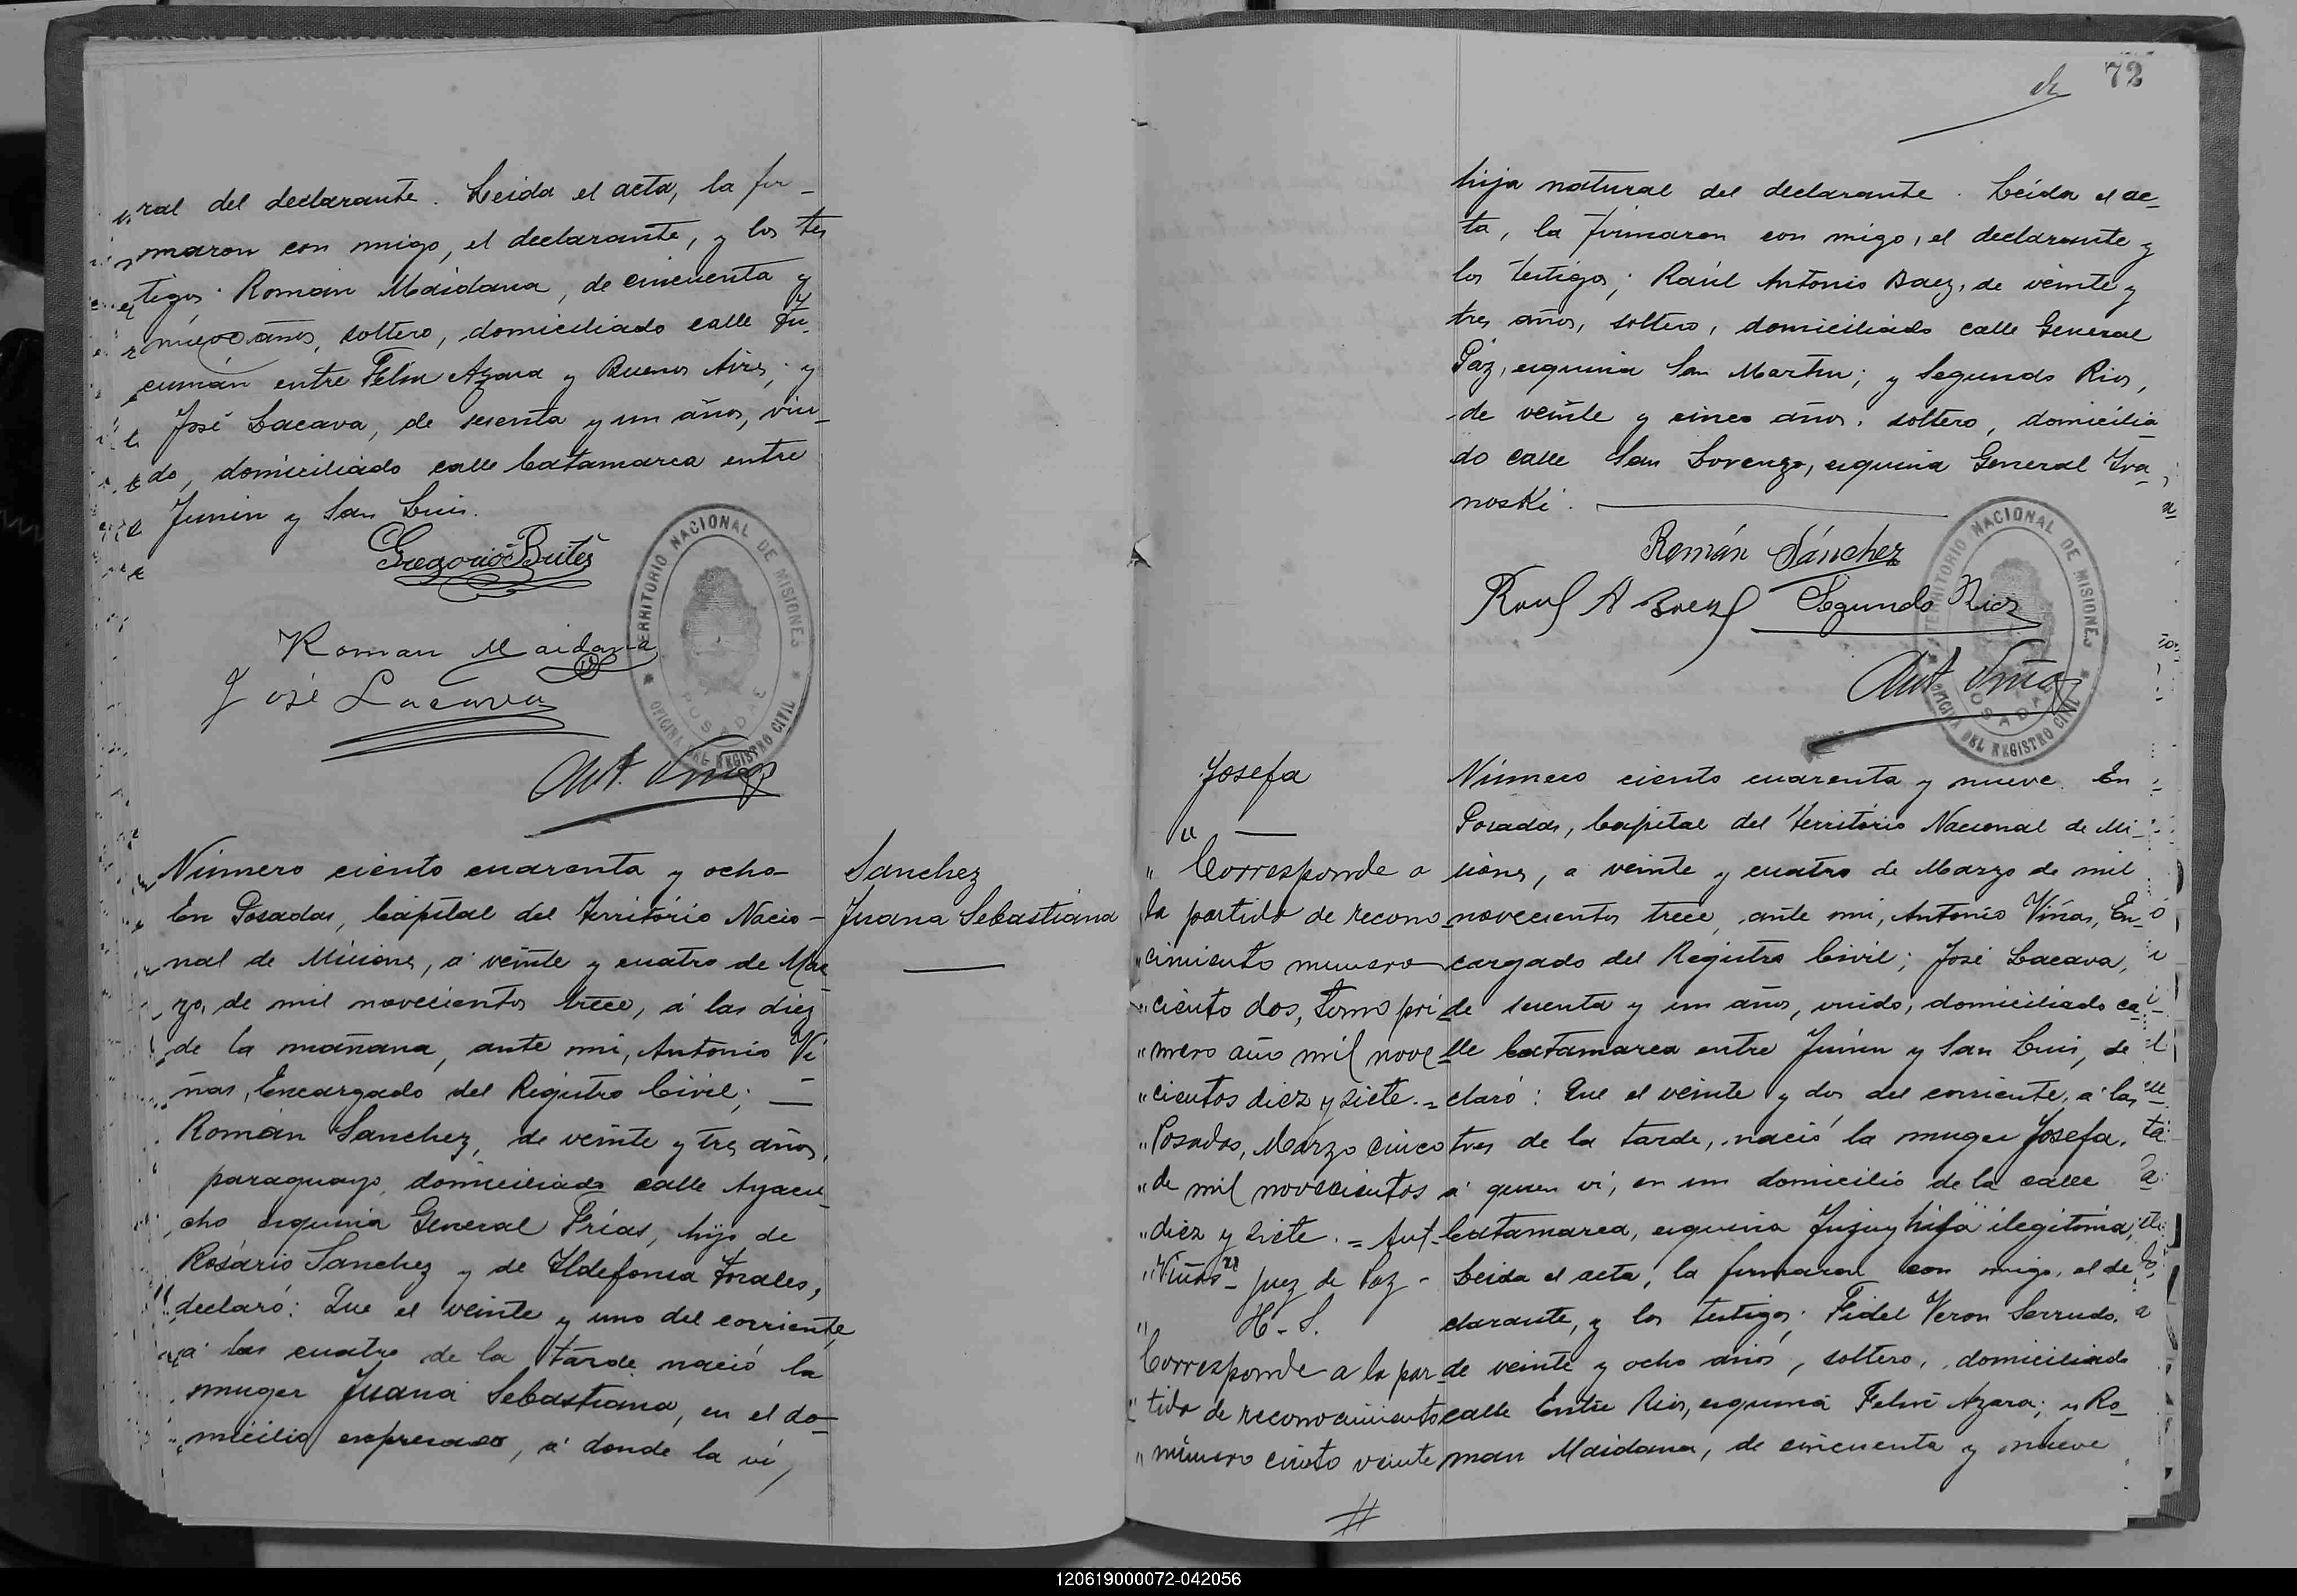 ral del declarante. Leida el acta, la fir-
maron con migo, el declarante, y los tes
tigos: Román Maidana, de cincuenta y
nueve años, soltero, domiciliado calle Tu-
cumán entre Felix Azara y Buenos Aires; y
José Lacava, de sesenta y un años, viu-
do, domiciliado calle Catamarca entre
Junin y San Luis.
Gregorio Britez
Roman Maidana
José Lacava
Ant. Viñas
TERRITORIO NACIONAL DE MISIONES
POSADAS
OFICINA DEL REGISTRO CIVIL
Número ciento cuarenta y ocho
En Posadas, Capital del Territorio Nacio-
nal de Misiones, á veinte y cuatro de Mar
zo, de mil novecientos trece, á las diez
de la mañana, ante mi, Antonio Vi
ñas, Encargado del Registro Civil;
Román Sanchez, de veinte y tres años,
paraguayo, domiciliado calle Ayacu-
cho esquina General Frías, hijo de
Rosário Sanchez y de Ildefonsa
declaró: Que el veinte y uno del corriente,
á las cuatro de la tarde nació la
muger Juana Sebastiana, en el do-
micilio expresado, á donde la ví,
Sanchez
Juana Sebastiana
72
hija natural del declarante. Leída el ac-
ta, la firmaron con migo, el declarante y
los testigos; Raúl Antonio Baez, de veinte y
tres años, soltero, domiciliado calle General
Paz, esquina San Martin; y Segundo Rios,
de veinte y cinco años, soltero, domicilia-
do calle San Lorenzo, esquina General Iva-
noski.
Román Sánchez
Raul A Baez Segundo Rios
Ant Viñas
TERRITORIO NACIONAL DE MISIONES
POSADAS
OFICINA DEL REGISTRO CIVIL
Josefa
"
" Corresponde a
la partida de recono-
"cimiento numero
"ciento dos, tomo pri-
"mero año mil nove-
"cientos diez y siete.=
"Posadas, Marzo cinco
"de mil novecientos
"diez y siete.= Ant-
"Viñas= juez de Paz-
" H-S.
Corresponde a la par-
"tida de reconocimiento
"número ciento veinte
Número ciento cuarenta y nueve. En
Posadas, Capital del Território Nacional de Mi-
siones, a veinte y cuatro de Marzo de mil
novecientos trece, ante mi, Antonio Viñas, En-
cargado del Registro Civil; José Lacava,
de sesenta y un años, viudo, domiciliado ca-
lle Catamarca entre Junin y San Luis, de
claró: Que el veinte y dos del corriente, á las
tres de la tarde, nació la muger Josefa,
á quien ví, en un domicilio de la calle
Catamarca, esquina Jujuy hija ilegitima;
Leida el acta, la firmaron con migo, el de
clarante, y los testigos; Fidel Veron Serrudo,
de veinte y ocho años, soltero, domiciliado
calle Entre Rios, esquina Felix Azara; y Ro-
man Maidana, de cincuenta y nueve
#
120619000072-042056